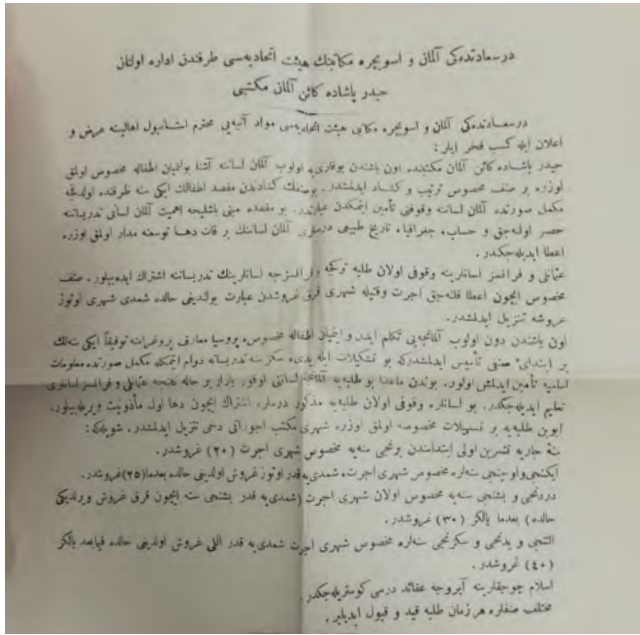 درسعادتده‌كی آلمان و اسویچره مكاتبنك هیئت اتحادیه‌سی طرفندن اداره اولنان
حیدر پاشاده كائن آلمان مكتبی
درسعادتده‌كی آلمان و اسویچره مكاتبی هیئت اتحادیه‌سی مواد آتیه‌یی محترم استانبول اهالیسنه عرض و
اعلان ایله كسب فخر ایلر :
حیدر پاشاده كائن آلمان مكتبنده اون یاشندن یوقاری‌یه اولوب آلمان لسانته آشنا بولنمیان اطفاله مخصوص اولمق
اوزره بر صنف مخصوص ترتیب و كشاد ایدلمشدر . بو صنفك كشادندن مقصد اطفالك ایكی سنه ظرفنده اولدقجه
مكمل صورتده آلمان لساننه وقوفنی تأمین ایتمكدن عبارتدر. بو مقصده مبنی باشلیجه اهمیت آلمان لسانی تدریساتنه
حصر اولنه‌جق و حساب، جغرافیا، تاریخ طبیعی درسلری آلمان لساننك بر قات دها توسعنه مدار اولمق اوزره
اعطا ایدیله‌جكدر .
عثمانلی و فرانسز لسانلرینه وقوفی اولان طلبه تركجه و فرانسزجه لسانلرینك تدریساتنه اشتراك ایده‌بیلور . صنف
مخصوص ایچون اعطا قلنه‌جق اجرت وقتیله شهری قرق غروشدن عبارت بولندیغی حالده شمدی شهری اوتوز
غروشه تنزیل ایدلمشدر .
اون یاشندن دون اولوب آلمانجه‌یی تكلم ایدر و ایتمیان اطفاله مخصوص، پروسیا معارف پروغرامنه توفیقاً ایكی سنه‌لك
بر ابتدائی صنفی تأسیس ایدلمشدركه بو تشكیلات ایله یدی، سكز سنه تدریساته دوام ایتمكله مكمل صورتده معلومات
اساسیه تأمین ایدلمش اولور. بوندن ماعدا بو طلبه‌یه آلمانجه لساننی اوقور یازار بر حاله كلنجه عثمانلی و فرانسز لسانلری
تعلیم ایدیله‌جكدر. بو لسانلره وقوفی اولان طلبه‌یه مذكور درسلره اشتراك ایچون دها اول مأذونیت ویریله‌بیلور.
ابوین طلبه‌یه بر تسهیلات مخصوصه اولمق اوزره شهری مكتب اجوراتی دخی تنزیل ایدلمشدر. شویله‌كه:
سنهٔ جاریه تشرین اولی ابتداسندن برنجی سنه‌یه مخصوص شهری اجرت (٢٠) غروشدر.
ایكنجی و اوچنجی سنه‌لره مخصوص شهری اجرت، شمدی‌یه قدر اوتوز غروش اولدیغی حالده بعدما (٢٥) غروشدر.
دردنجی و بشنجی سنه‌یه مخصوص اولان شهری اجرت (شمدی‌یه قدر بشنجی سنه ایچون قرق غروش ویرلدیكی
حالده) بعدما یالكز (٣٠) غروشدر .
التنجی و یدنجی و سكزنجی سنه‌لره مخصوص شهری اجرت شمدی‌یه قدر اللی غروش اولدیغی حالده فیمابعد یالكز
(٤٠) غروشدر .
اسلام چوجقلرینه آیروجه عقائد درسی كوستریله‌جكدر .
مختلف صنفلره هر زمان طلبه قید و قبول ایدیلیر .